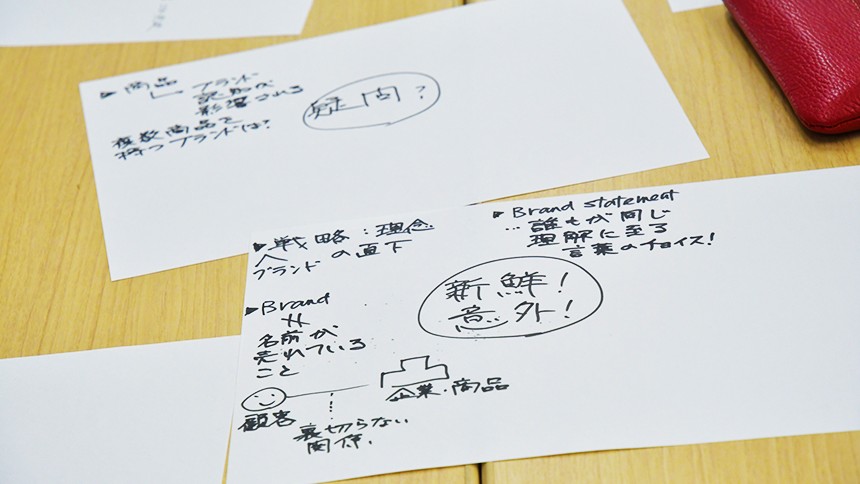 ▶商品
ブランド
認知が
影響される
複数商品を
持つブランドは?
疑問?
▶戦略:理念
ブランド の直下
▶Brand statement
…誰もが同じ
理解に至る
言葉のチョイス!
新鮮!
意外!
▶Brand
名前が
売れている
こと
顧客
企業・商品
裏切らない
関係.